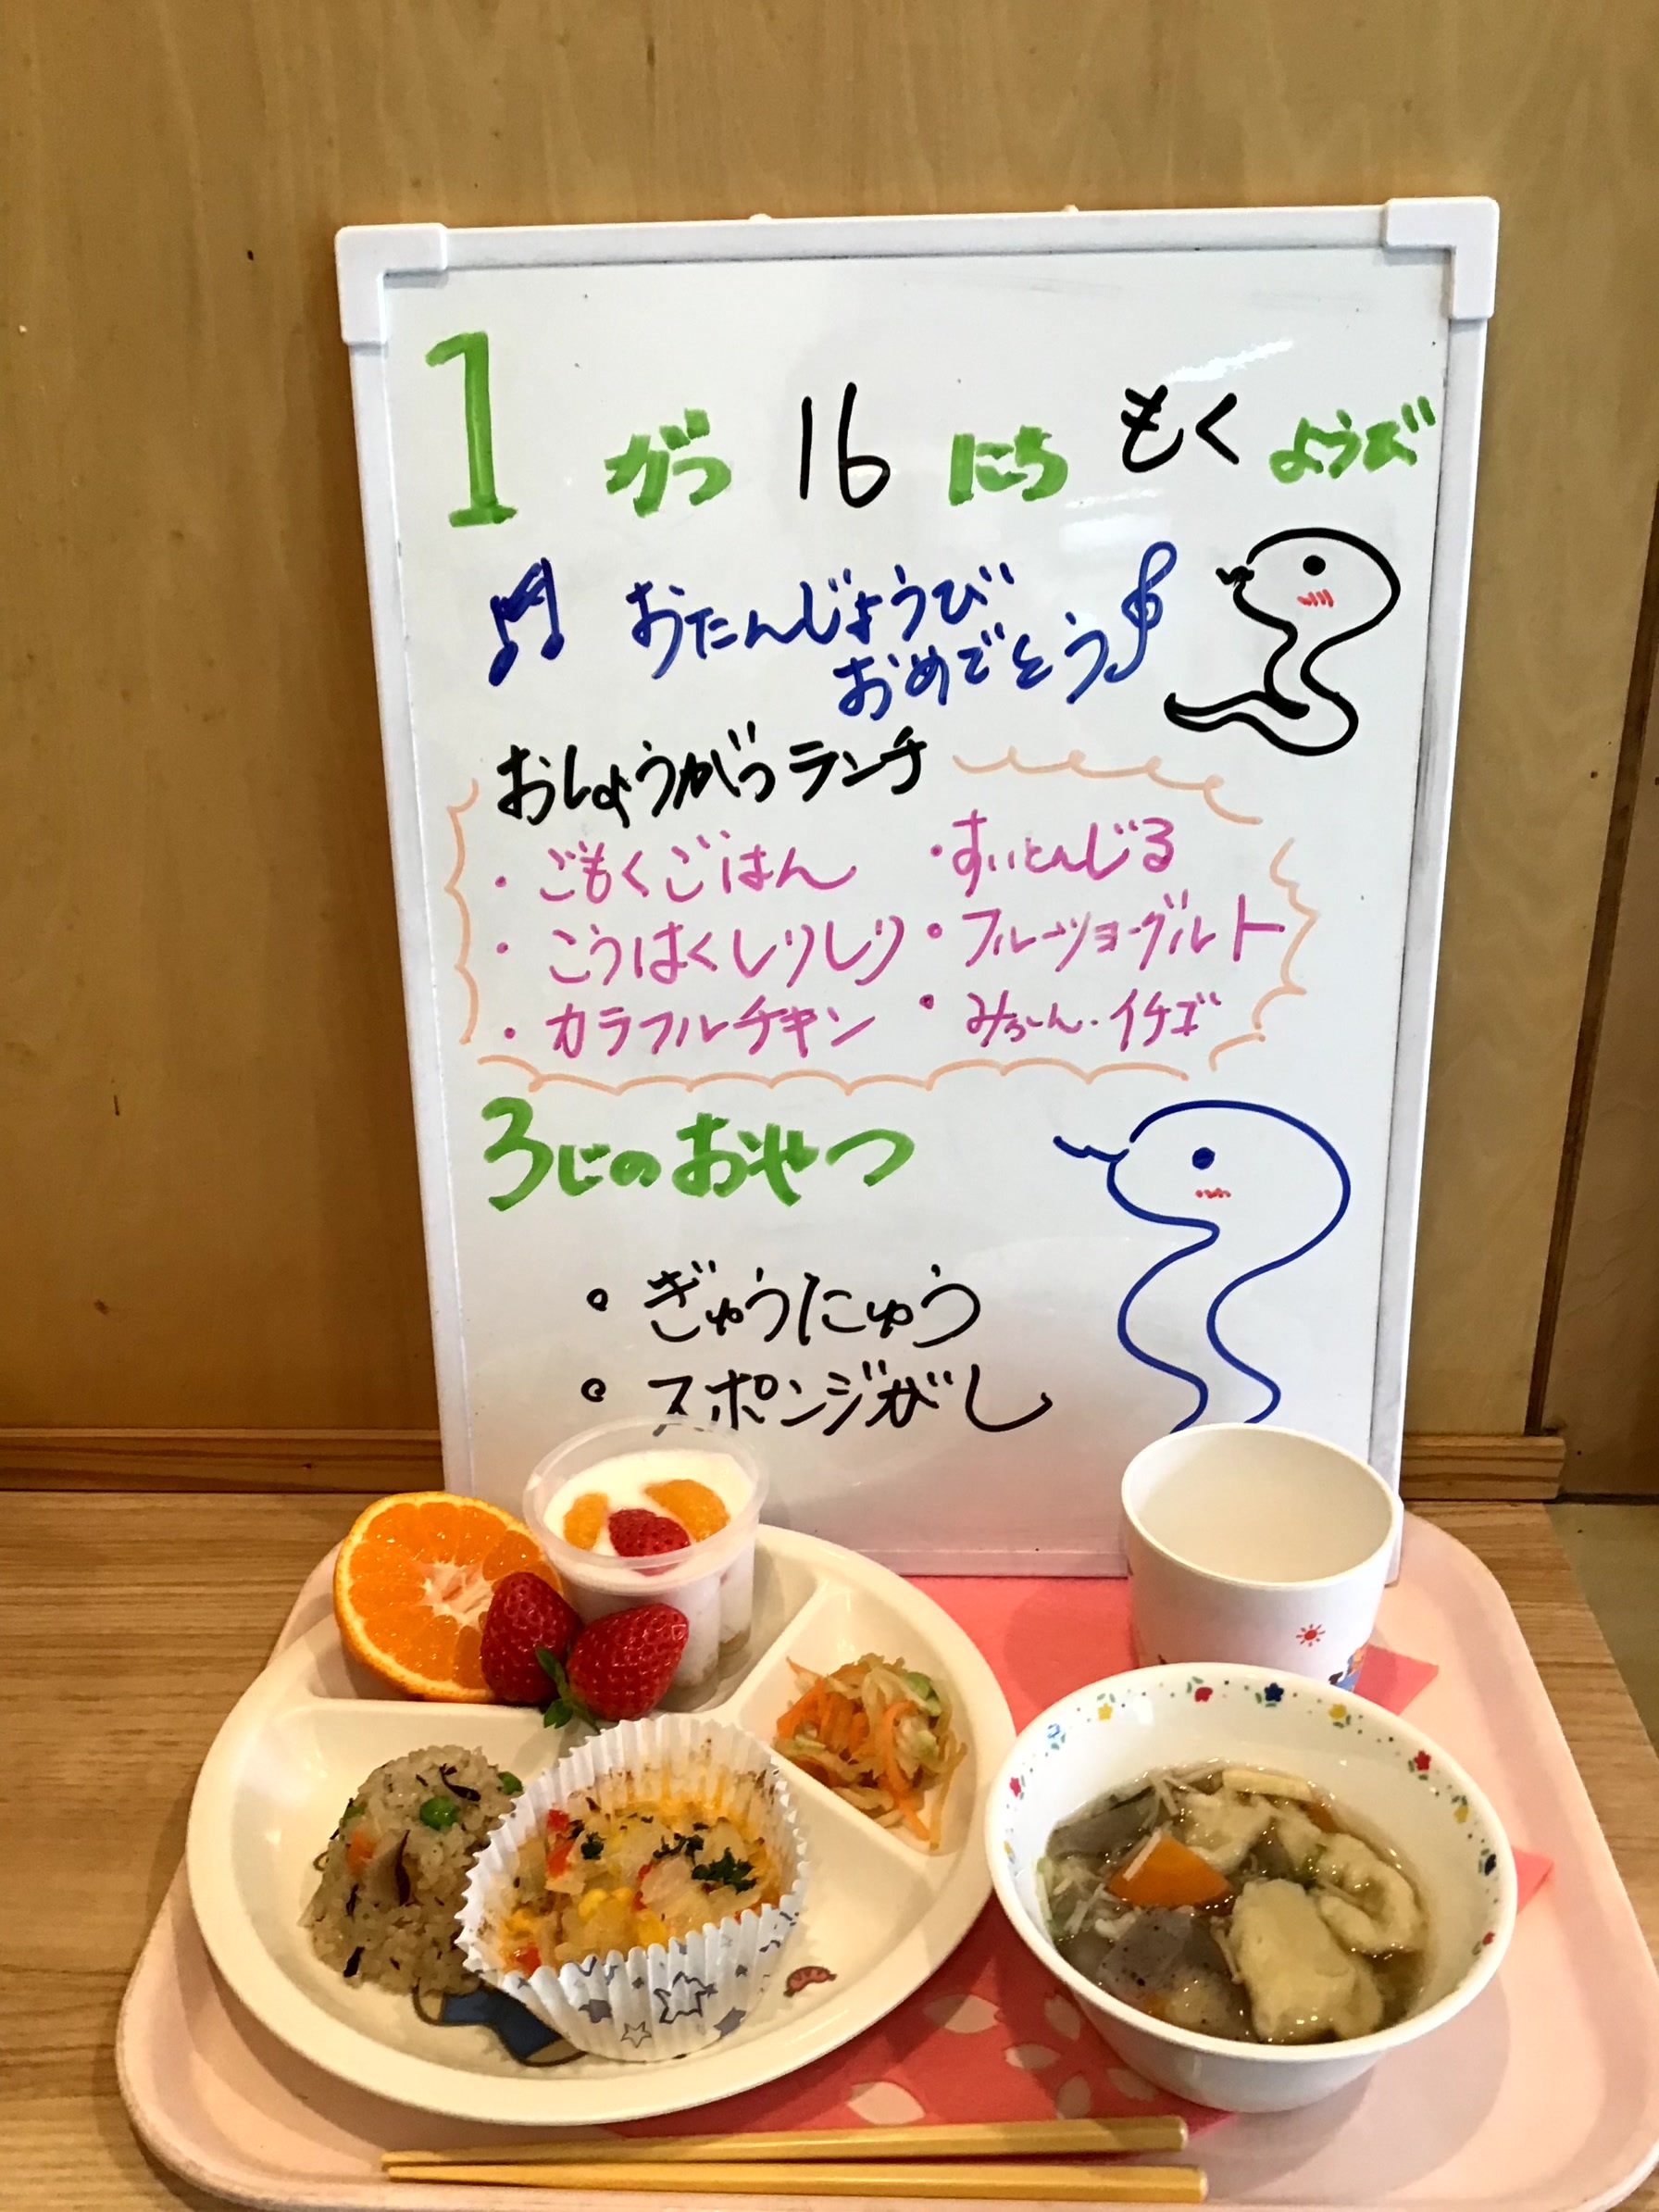 1 がつ 16 にち もく ようび
おたんじょうび
おめでとう
おしょうがつランチ
・ごもくごはん ・すいとんじる
・こうはくしりしり ・フルーツヨーグルト
・カラフルチキン ・みかん・イチゴ
3じのおやつ
・ぎゅうにゅう
・スポンジがし